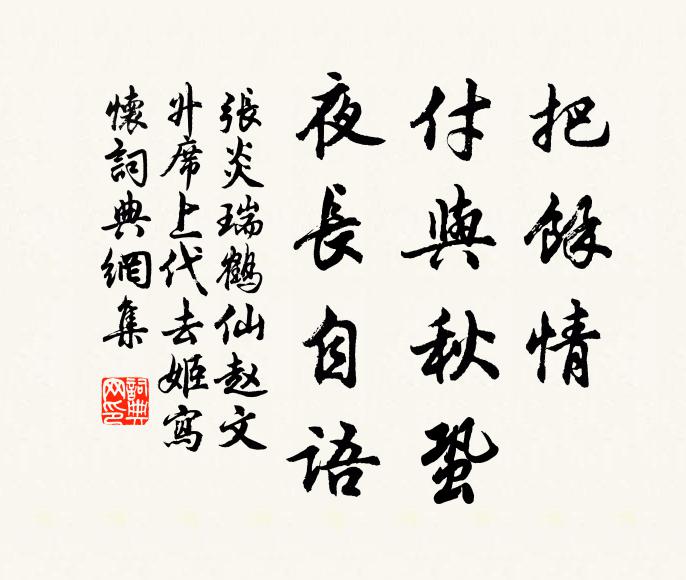 把餘情
付與秋蛩
夜長自語
張炎瑞鶴仙赵文
升席上代去姬寫
懷詞典網集
詞典網印